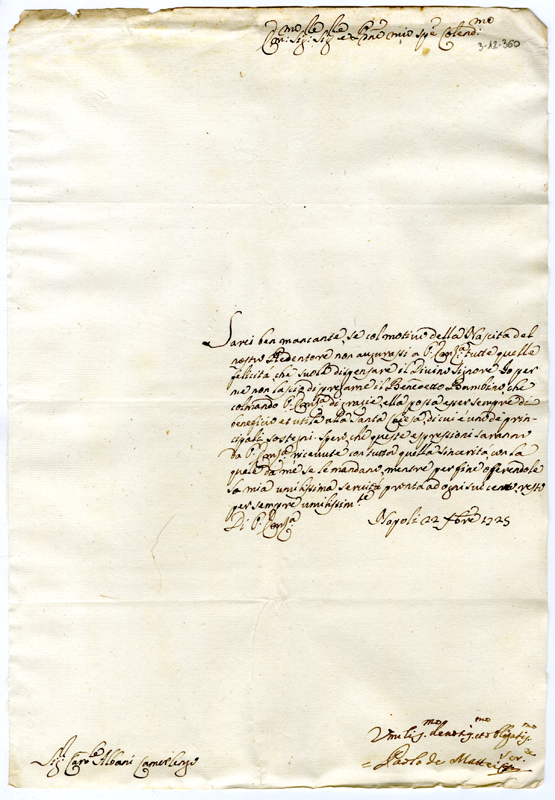 E.mo Sig.r Sig.r e P.ne mio Sp.e Colend.mo
3-12-360
Sarei ben mancante, se col motivo della Nascita del
nostro Redentore non augurassi a V. Em.za tutte quelle
felicità, che suole dispensare il Divino Signore. Io per
me non lascio di pregarne il Benedetto Bambino, che
colmando V. Em.za di grazie, ella possa esser sempre di
beneficio et utile alla Santa Chiesa, di cui è uno de prin-
cipali sostegni. Spero che queste espressioni saranno
da V. Em.za ricevute con tutta quella sincerità con la
quale da me se le mandano, mentre per fine offerendole
la mia umilissima servitù pronta ad ogni suo cenno, resto
per sempre umilissim.te
Di V. Em.za
Napoli 22 Xbre 1725
Umiliss.mo devotiss.mo et obligatiss.mo
Ser.re
Paolo de Matteis
Sig.r Card.le Albani Camerlengo